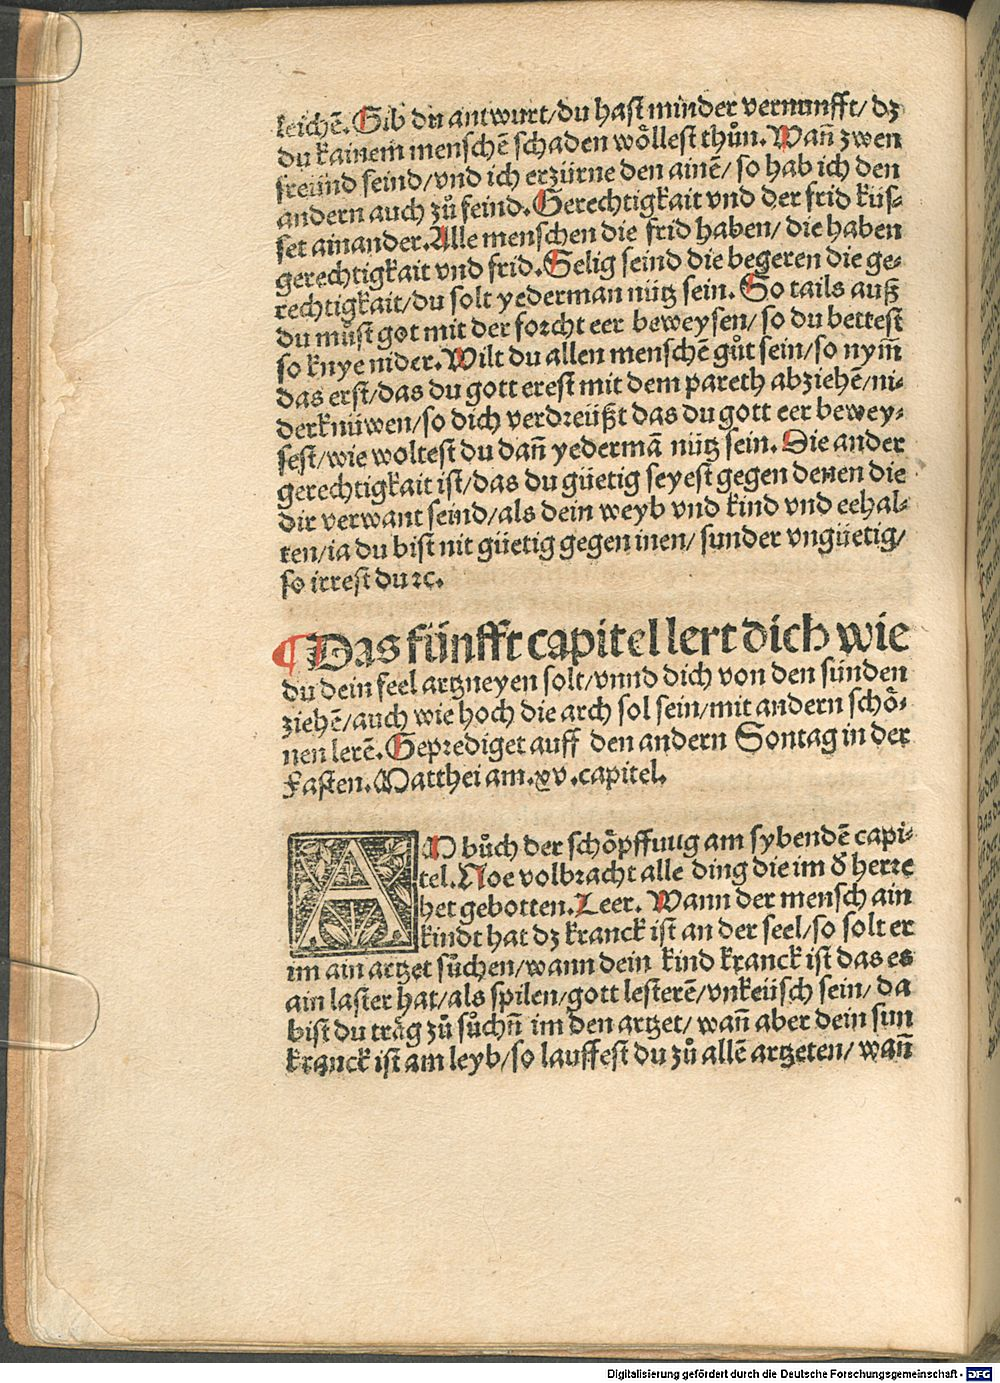 leichē. Gib du antwurt/du hast minder vernunfft/ dz
du kainem menschē schaden wöllest thůn. Wañ zwen
freünd seind/vnd ich erzürne den ainē/ so hab ich den
andern auch zů feind. Gerechtigkait vnd der frid küs-
set ainander. Alle menschen die frid haben/ die haben
gerechtigkait vnd frid. Selig seind die begeren die ge-
rechtigkait/du solt yederman nütz sein. So tails auß
du můst got mit der forcht eer beweysen/ so du bettest
so knye nider. Wilt du allen menschē gůt sein/so nym̄
das erst/das du gott erest mit dem pareth abziehē/ni-
derknüwen/so dich verdreüßt das du gott eer bewey-
sest/wie woltest du dañ yedermā nütz sein. Die ander
gerechtigkait ist/das du güetig seyest gegen denen die
dir verwant seind/als dein weyb vnd kind vnd eehal-
ten/ia du bist nit güetig gegen inen/ sunder vngüetig/
so irrest du ꝛc.
¶ Das fünfft capitel lert dich wie
du dein seel artzneyen solt/vnnd dich von den sünden
ziehē/auch wie hoch die arch sol sein/mit andern schö-
nen lerē. Geprediget auff den andern Sontag in der
Fasten. Matthei am .xv. capitel.
AM bůch der schöpffuug am sybendē capi-
tel. Noe volbracht alle ding die im ð herre
het gebotten. Leer. Wann der mensch ain
kindt hat dz kranck ist an der seel/so solt er
im ain artzet sůchen/wann dein kind kranck ist das es
ain laster hat/als spilen/gott lesterē/vnkeüsch sein/ da
bist du träg zů sůchñ im den artzet/ wañ aber dein sun
kranck ist am leyb/so lauffest du zů allē artzeten/ wañ
Digitalisierung gefördert durch die Deutsche Forschungsgemeinschaft - DFG